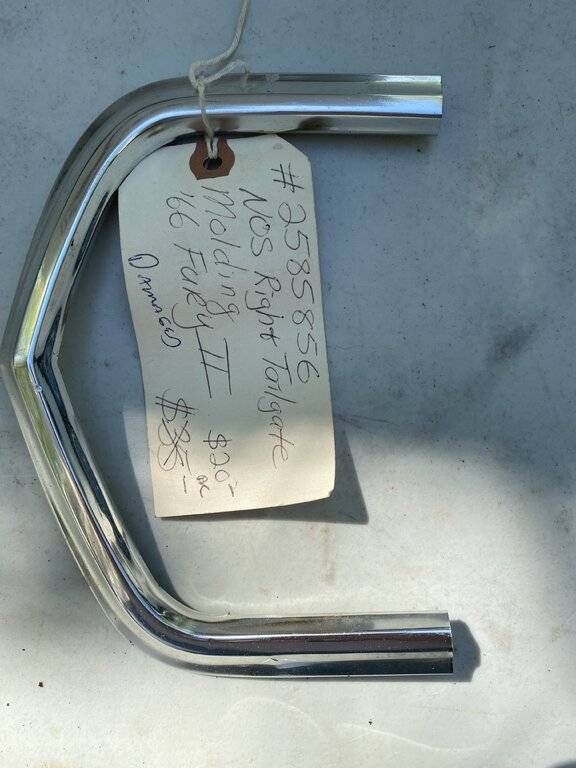 #2585856
NOS Right Tailgate
Molding $20-
'66 Fury II
Damaged $35-